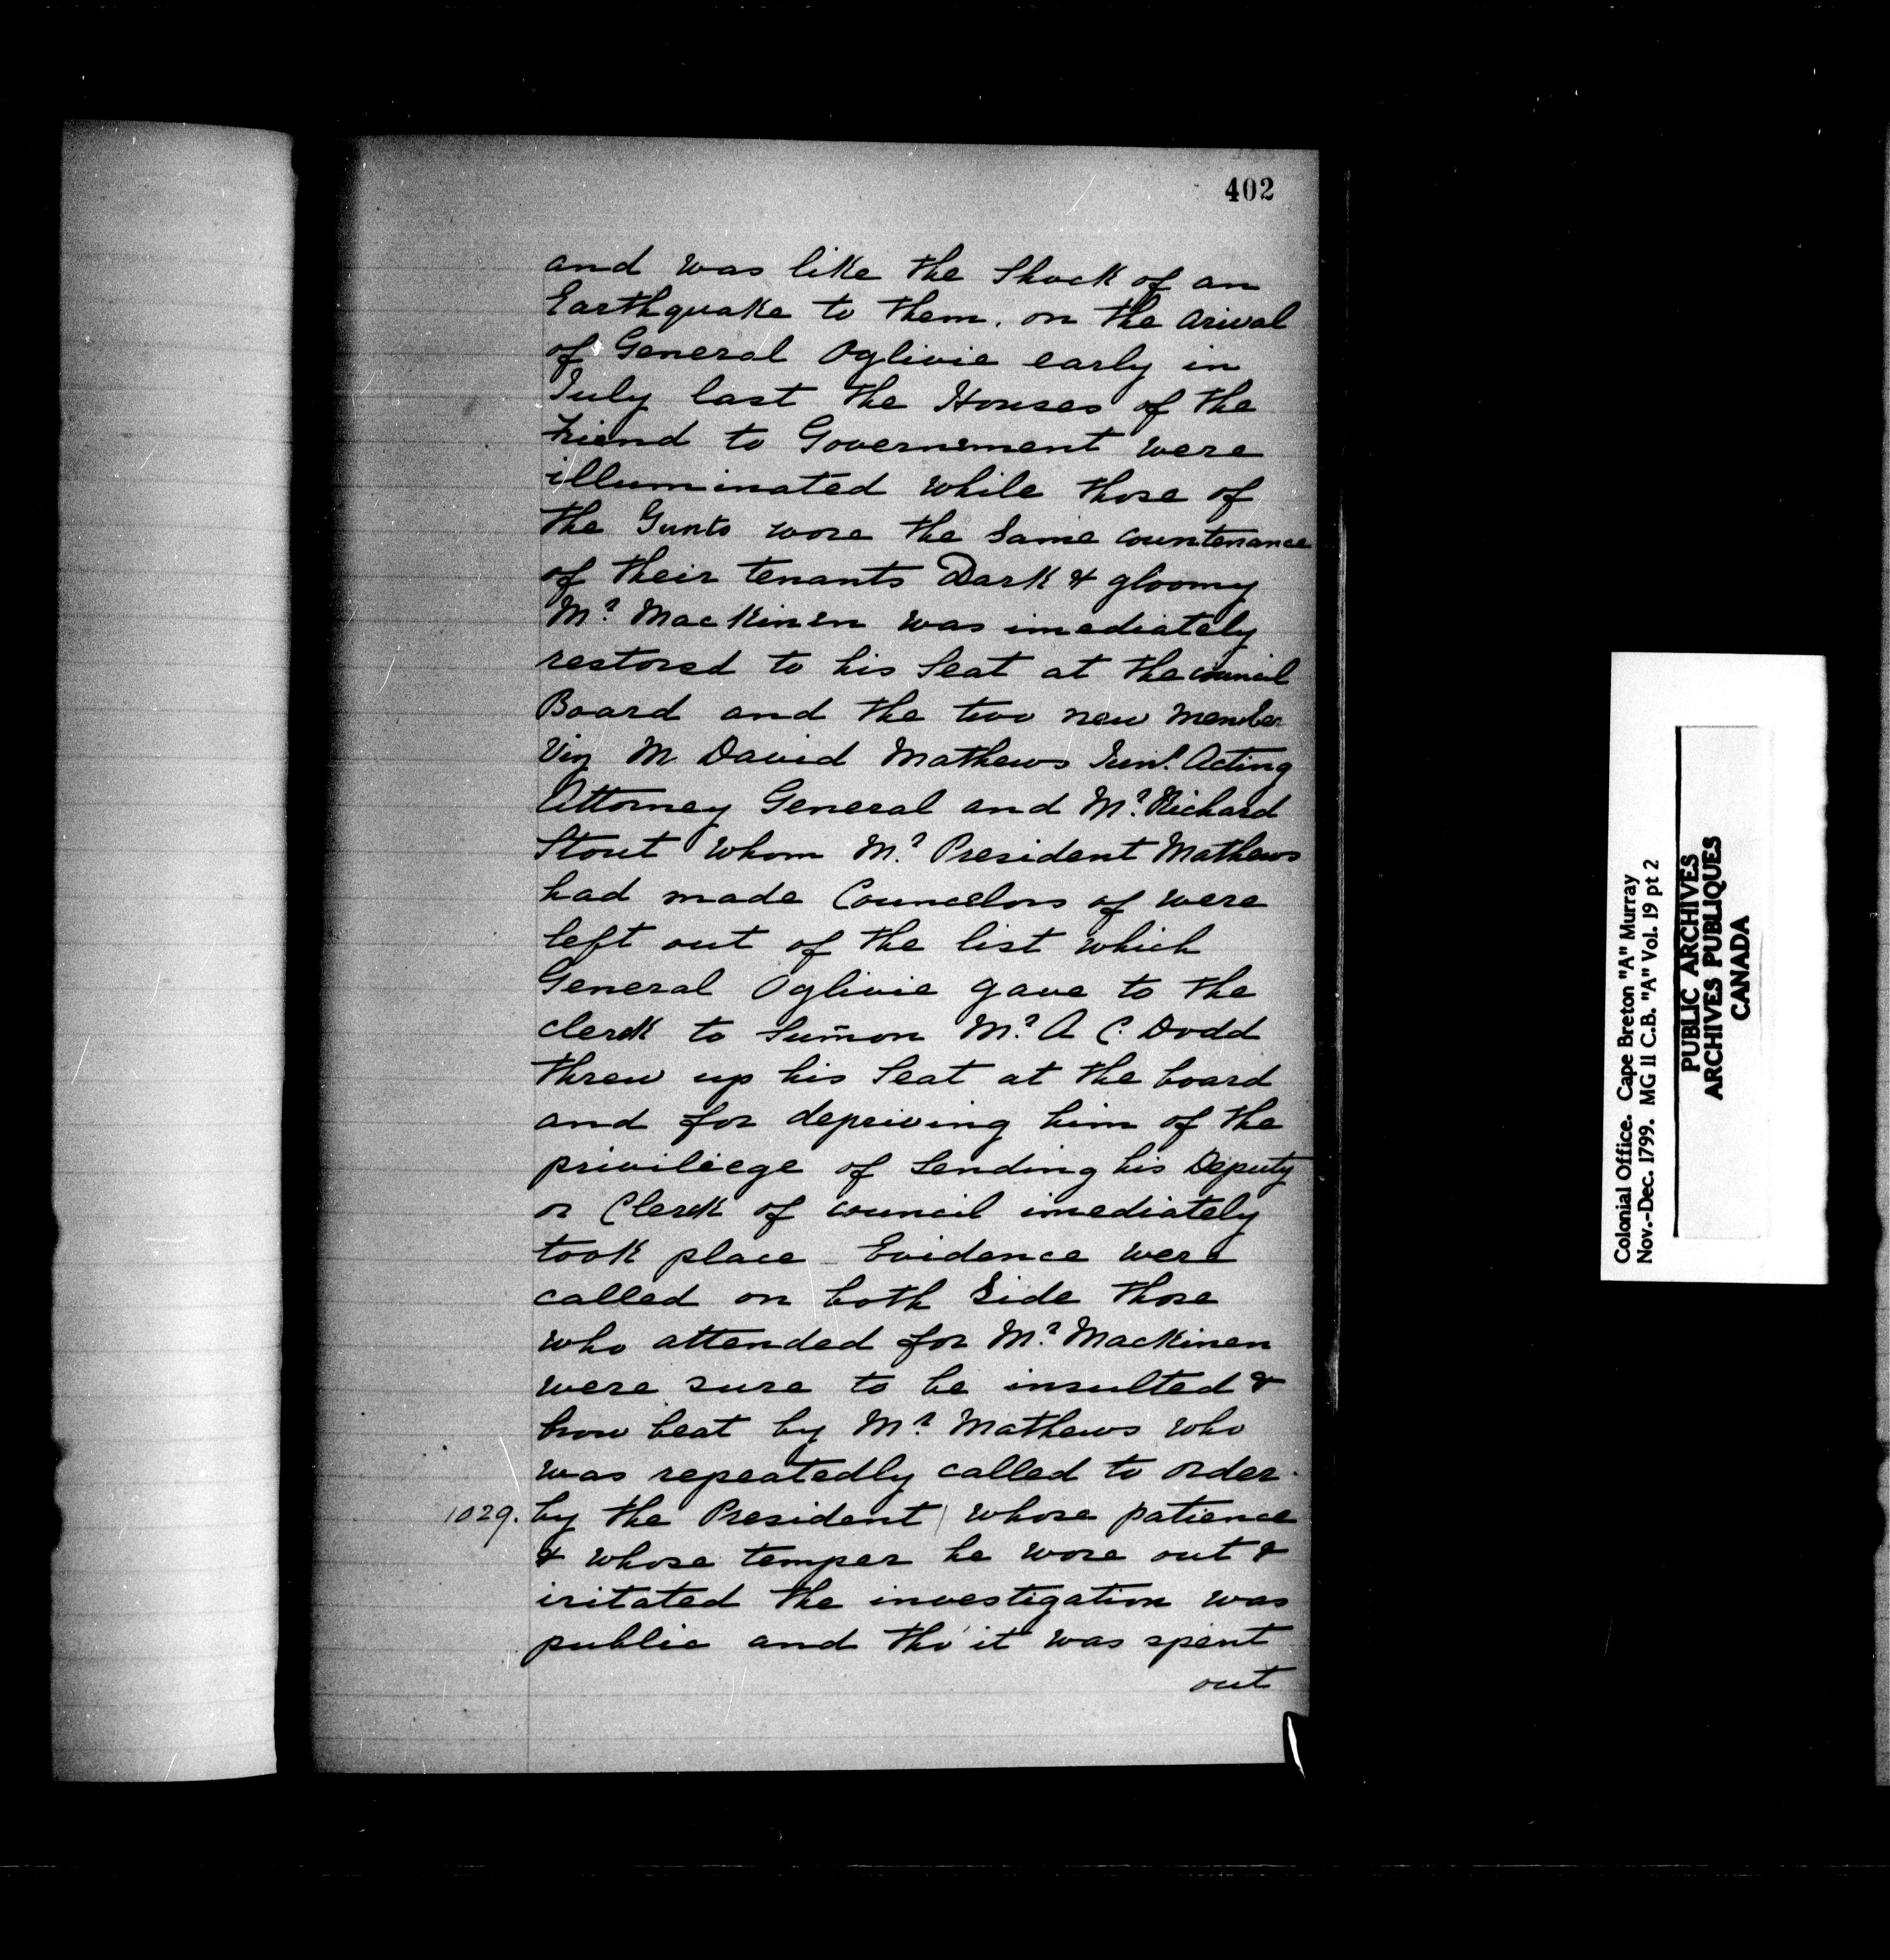 402
and was like the Shock of an
Earthquake to them. on the arival
of General Oglivie early in
July last the Houses of the
friend to Governement were
illuminated while those of
the Gunto wore the Same countenance
of their tenants Dark & gloomy
Mr. Mackinen was imediately
restored to his Seat at the council
Board and the two new member
Viz M David Mathews Junr. Acting
Attorney General and Mr. Richard
Stout whom Mr. President Mathews
had made Councelors of were
left out of the list which
General Oglivie gave to the
clerck to Sumon Mr. A C. Dodd
threw up his Seat at the board
and for depriving him of the
priviliege of Sending his Deputy
or Clerck of council imediately
took place _ Evidence were
called on both Side those
who attended for Mr. Mackinen
were sure to be insulted &
brow beat by Mr. Mathews who
was repeatedly called to order
1029. by the President / whose patience
& whose temper he wore out &
iritated the investigation was
public and tho' it was spent
out
Colonial Office. Cape Breton "A" Murray
Nov.-Dec. 1799. MG 11 C.B. "A" Vol. 19 pt 2
PUBLIC ARCHIVES
ARCHIVES PUBLIQUES
CANADA